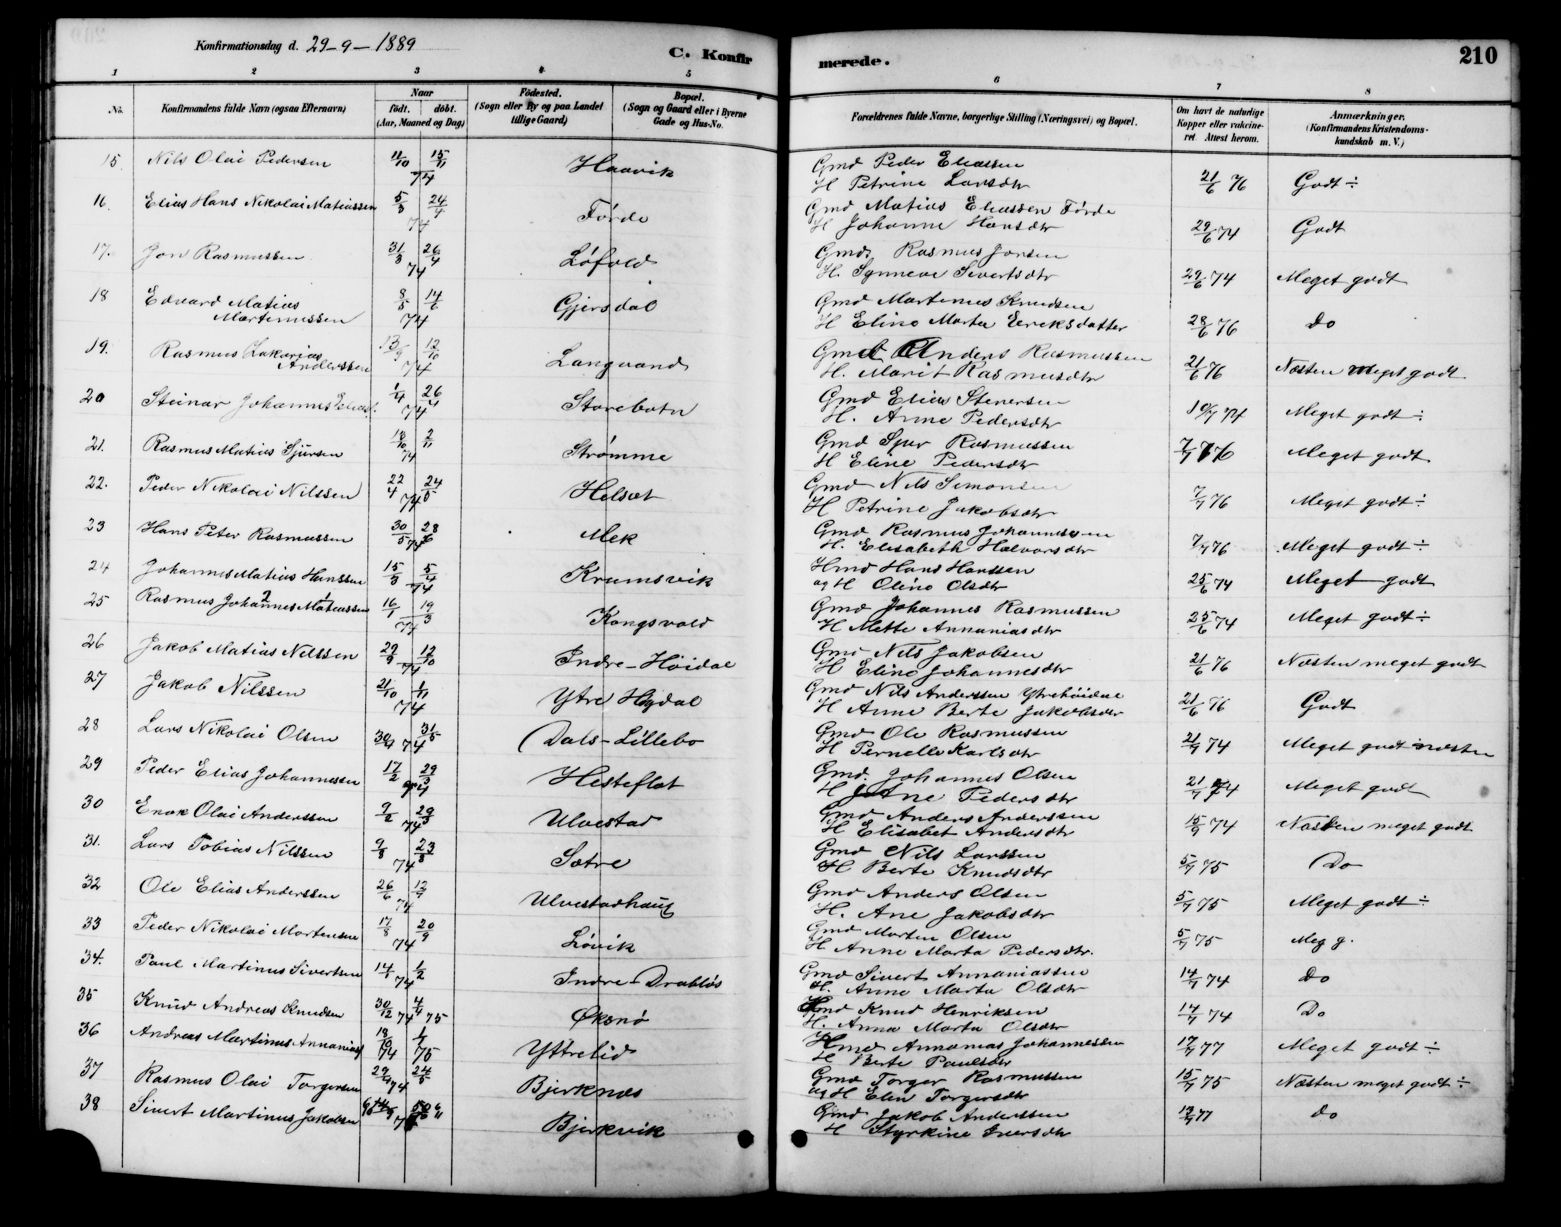 Konfirmationsdag d. 29-9-1889
C. Konfirmerede.
210
1 2 3 4 5 6 7 8
No. Konfirmandens fulde Navn (ogsaa Efternavn) Naar født. døbt. (Aar, Maaned og Dag) Fødested. (Sogn eller By og paa Landet tillige Gaard) Bopæl. (Sogn og Gaard eller i Byerne Gade og Hus-No. Forældrenes fulde Navne, borgerlige Stilling (Næringsvei) og Bopæl. Om havt de naturlige Kopper eller vaccineret. Attest herom. Anmærkninger. (Konfirmandens Kristendomskundskab m. V.)
15 Nils Olai Pedersen 11/10 15/11 74 Haavik Gmd Peder Eliassen H Petrine Larsdtr 21/6 76 Godt ÷
16. Elias Hans Nikolai Matiassen 5/3 24/4 74 Førde Gmd Matias Eliassen Førde H Johanne Hansdtr 29/6 74 Godt
17. Jon Rasmussen 31/3 26/4 74 Løfold Gmd. Rasmus Jonsen H. Synneve Sivertsdtr 29/6 74 Meget godt
18 Edvard Matias Martinussen 8/5 14/6 74 Gjersdal Gmd Martinus Knudsen H Eline Marta Eeriksdatter 28/6 76 Do
19. Rasmus Zakarias Anderssen 13/9 12/10 74 Langvand Gmd Anders Rasmussen H. Marit Rasmusdtr 21/6 76 Næsten meget godt
20 Steinar Johannes Elias. 1/4 26/4 74 Storebotn Gmd Elias Stenersen H. Anne Pedersdtr 10/7 74 Meget godt ÷
21. Rasmus Matias Sjursen 18/10 2/11 74 Strømme Gmd Sjur Rasmussen H Eline Pedersdtr 7/7 76 Meget godt
22. Peder Nikolai Nilssen 22/4 24/5 74 Helset Gmd Nils Simonsen H Petrine Jakobsdtr 7/7 76 Meget godt ÷
23 Hans Peter Rasmussen 30/5 28/6 74 Mek Gmd Rasmus Johannessen H. Elisabeth Halvorsdtr 7/7 76 Meget godt ÷
24 Johannes Matias Hanssen 15/3 5/4 74 Krumsvik Hmd Hans Hanssen og H Oline Olsdtr 25/6 74 Meget godt
25 Rasmus Johannes Matiassen 16/1 19/3 74 Kongsvold Gmd Johannes Rasmussen H Mette Annaniasdtr 25/6 74 Meget godt ÷
26 Jakob Matias Nilssen 29/9 12/10 74 Indre-Høidal Gmd Nils Jakobsen H Eline Johannesdtr 21/6 76 Næsten meget godt
27 Jakob Nilssen 21/10 1/11 74 Ytre Høydal Gmd Nils Anderssen Ytrehøidal H Anne Berte Jakobsdtr 21/6 76 Godt
28 Lars Nikolai Olsen 30/4 31/5 74 Dals-Lillebo Gmd Ole Rasmussen H Pernelle Karlsdtr 21/7 74 Meget godt næsten
29 Peder Elias Johannessen 17/2 29/3 74 Hesteflot Gmd. Johannes Olsen H Ane Pedersdtr 21/7 74 Meget godt
30 Enok Olai Anderssen 9/2 29/3 74 Ulvestad Gmd Anders Anderssen H Elisabet Andersdtr 15/7 74 Næsten meget godt
31. Lars Tobias Nilssen 9/8 23/8 74 Sætre Gmd Nils Larssen H Berte Knudsdtr 5/7 75 Do
32 Ole Elias Anderssen 26/6 12/7 74 Ulvestadhaug Gmd Anders Olsen H. Ane Jakobsdtr 5/7 75 Meget godt ÷
33 Peder Nikolai Martensen 17/8 20/9 74 Løvik Gmd Morten Olsen H Anne Marta Pedersdtr. 5/7 75 Meg g.
34. Paul Martinus Sivertsen 14/1 1/2 74 Indre-Drabløs Gmd Sivert Annaniassen H. Anne Marta Olsdtr 14/7 74 Do
35 Knud Andreas Knudsen 30/12 74 4/4 75 Øksnø Gmd Knud Henriksen H. Anna Marta Olsdtr 14/7 74 Do
36 Andreas Martinus Annanias 18/10 74 1/1 75 Yttrelid Hmd Annanias Johannessen H Berte Paulsdtr 17/7 77 Meget godt ÷
37 Rasmus Olai Torgersen 29/4 24/5 74 Bjerknes Gmd Torger Rasmussen og H Elin Torgersdtr 15/7 75 Næsten meget godt ÷
38 Sivert Martinus Jakobsen Bjerkvik Gmd Jakob Anderssen H Styrkine Iversdtr 12/7 77 do